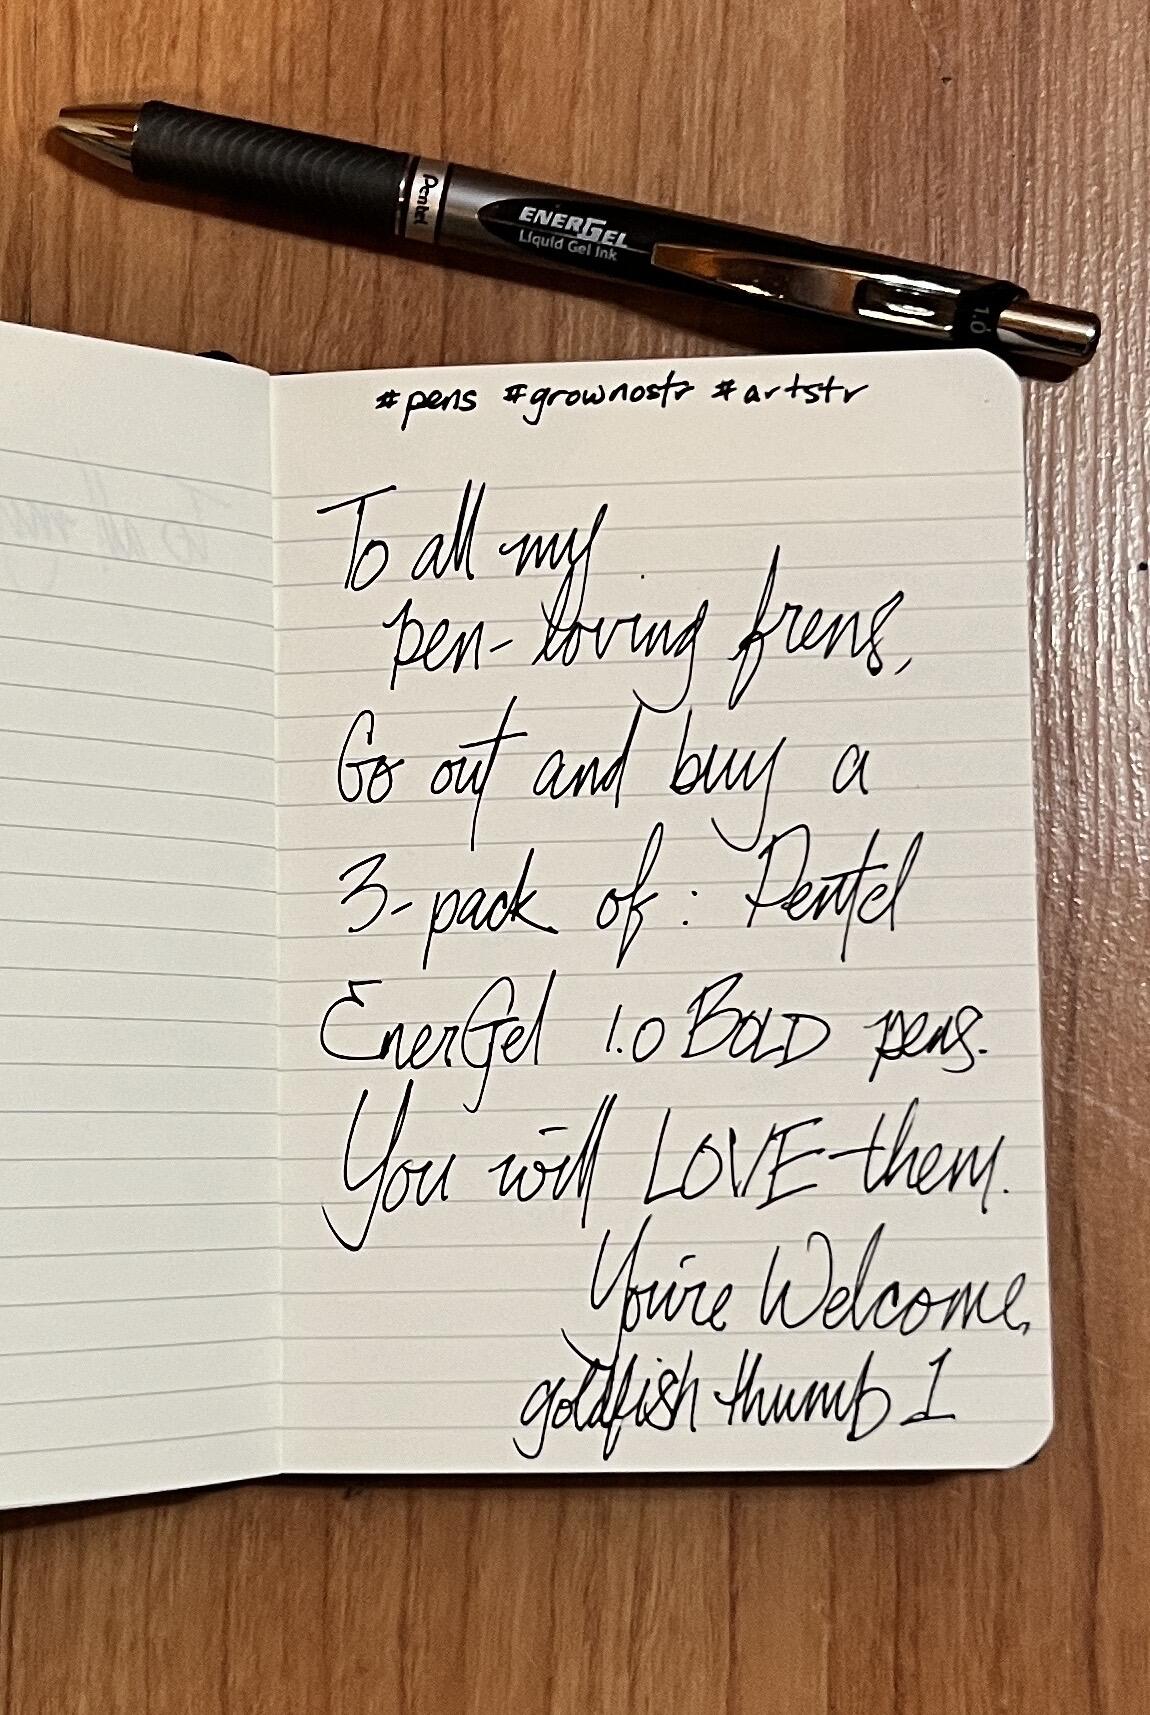 Pentel
ENERGEL
Liquid Gel Ink
1.0
#pens #grownostr #artstr
To all my
pen-loving frens,
Go out and buy a
3-pack of: Pentel
EnerGel 1.0 BOLD pens.
You will LOVE them.
You're Welcome,
goldfish thumb 1